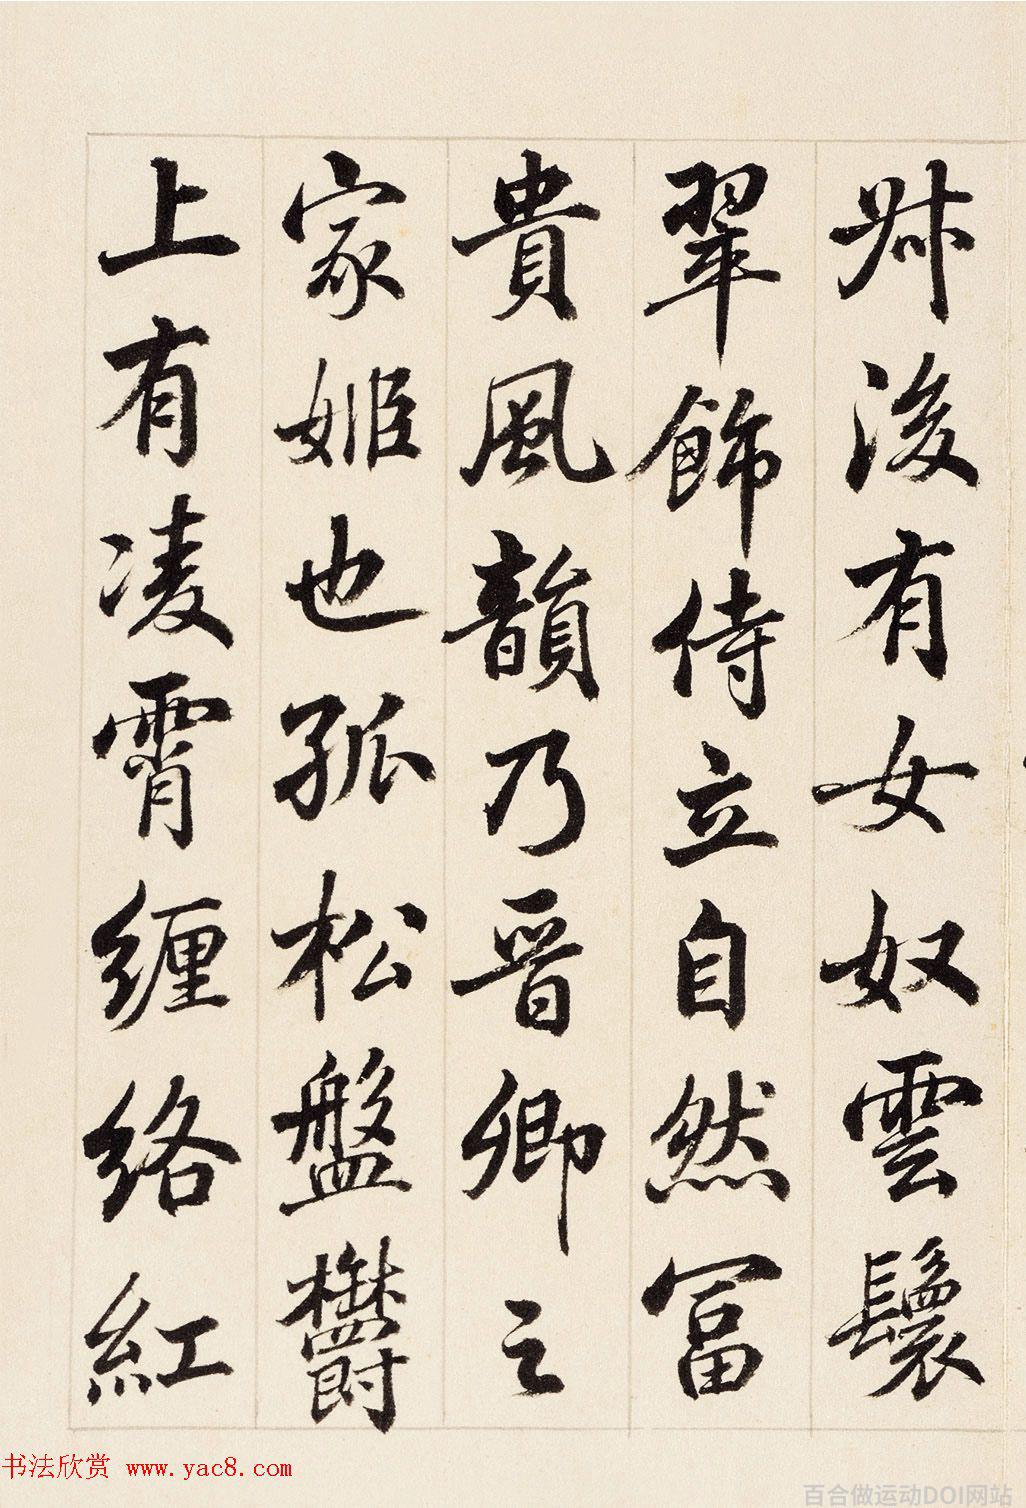 牀後有女奴雲鬟
翠飾侍立自然富
貴風韻乃晉卿之
家姬也孤松盤欝
上有凌霄缠络紅
书法欣赏 www.yac8.com
百合做运动DOI网站